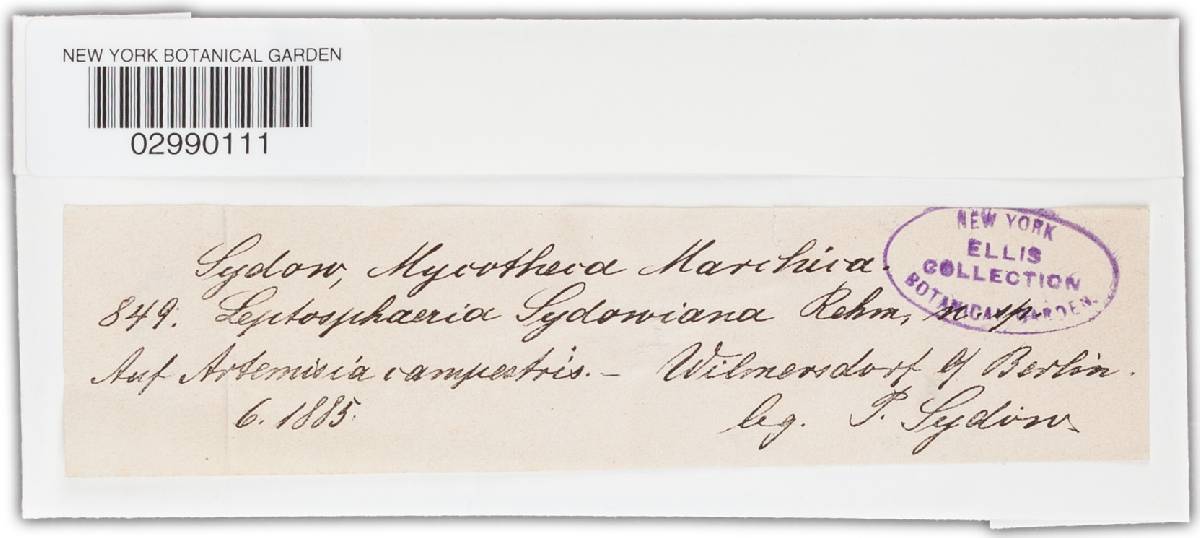 NEW YORK BOTANICAL GARDEN
02990111
NEW YORK
ELLIS
COLLECTION
BOTANICAL GARDEN.
Sydow, Mycotheca Marchica.
849. Leptosphaeria Sydowiana Rehm, n. sp.
Auf Artemisia campestris. – Wilmersdorf b/ Berlin.
6. 1885. leg. P. Sydow.